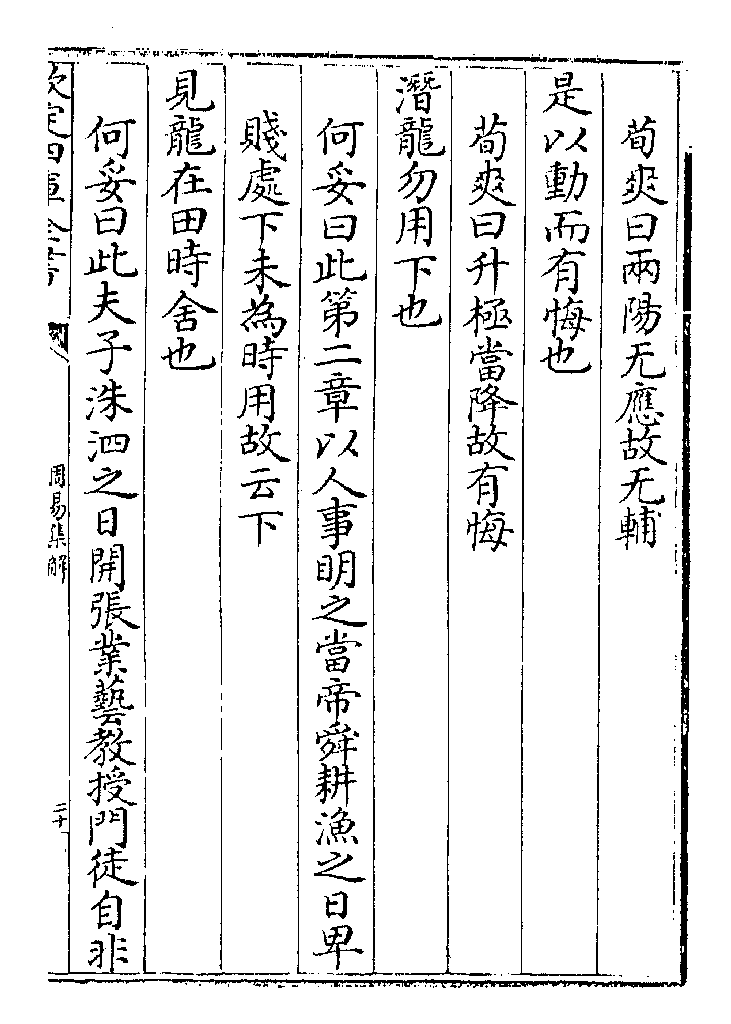 荀爽曰兩陽无應故无輔
是以動而有悔也
荀爽曰升極當降故有悔
潛龍勿用下也
何妥曰此第二章以人事明之當帝舜耕漁之日卑
賤處下未為時用故云下
見龍在田時舍也
何妥曰此夫子洙泗之日開張業藝教授門徒自非
欽定四庫全書
周易集解
二十